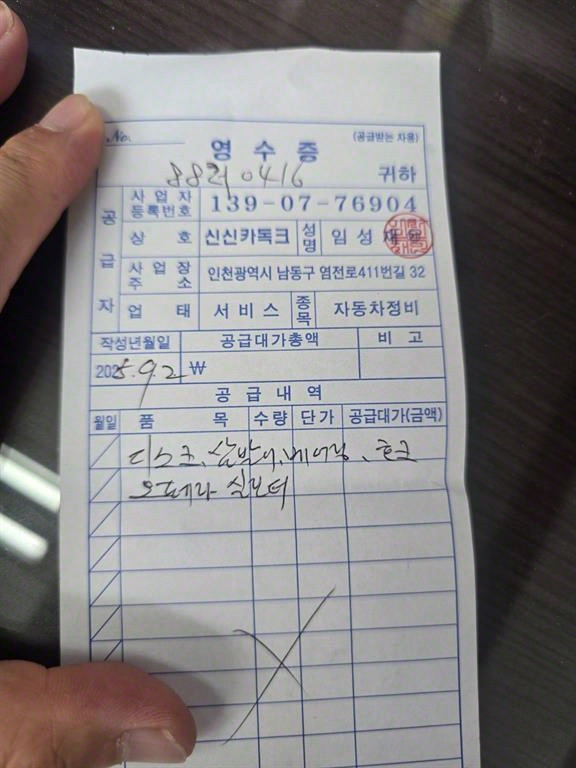 No.
영수증 (공급받는 자용)
88러0416 귀하
공급자
사업자등록번호 139-07-76904
상호 신신카독크 성명 임성재
사업장주소 인천광역시 남동구 염전로411번길 32
업태 서비스 종목 자동차정비
작성년월일 공급대가총액 비고
2025.9.2 ₩
공급내역
월일 품목 수량 단가 공급대가(금액)
디스크, 삼발이, 베어링, 호크
오페라 실린더